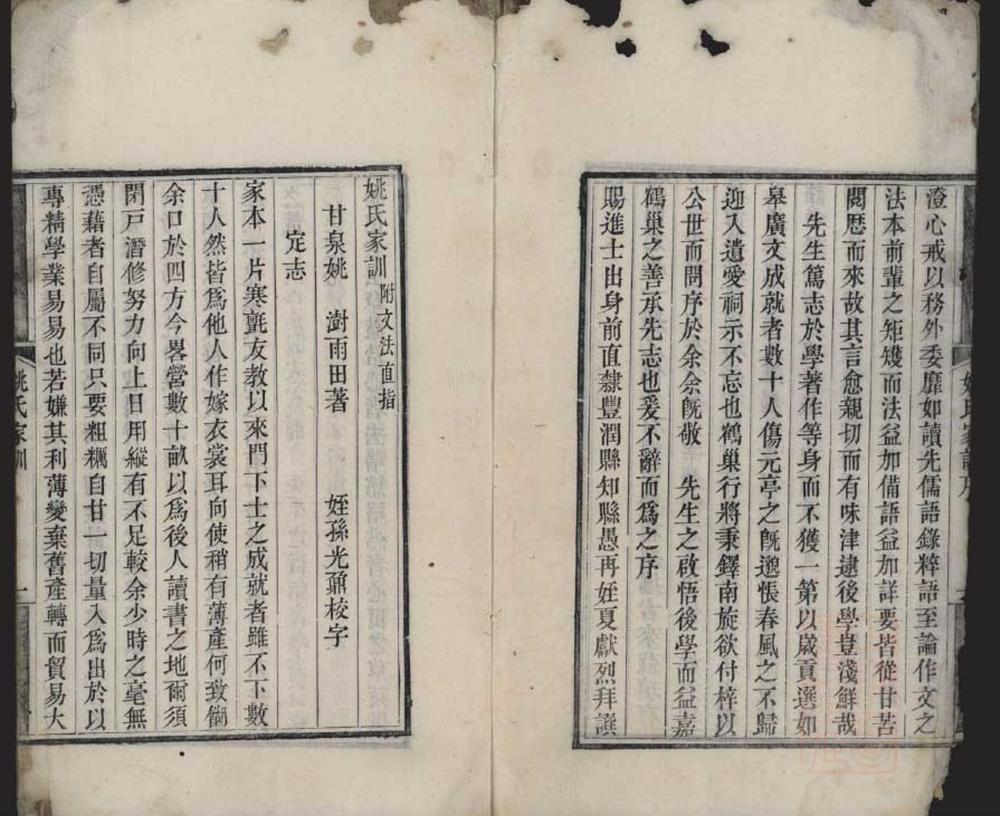 澄心戒以務外委靡如讀先儒語錄粹語至論作文之
法本前輩之矩矱而法益加備語益加詳要皆從甘苦
閱歷而來故其言愈親切而有味津逮後學豈淺鮮哉
先生篤志於學著作等身而不獲一第以歲貢選如
皋廣文成就者數十人傷元亭之旣邈悵春風之不歸
迎入遺愛祠示不忘也鶴巢行將秉鐸南旋欲付梓以
公世而問序於余余旣敬 先生之啟悟後學而益嘉
鶴巢之善承先志也爰不辭而爲之序
賜進士出身前直隸豐潤縣知縣愚再姪夏獻烈拜譔
姚氏家訓附文法直指
甘泉姚 澍雨田著 姪孫光鼐校字
定志
家本一片寒氈友教以來門下士之成就者雖不下數
十人然皆爲他人作嫁衣裳耳向使稍有薄產何致餬
余口於四方今畧營數十畝以爲後人讀書之地爾須
閉戸潛修努力向上日用縱有不足較余少時之毫無
憑藉者自屬不同只要粗糲自甘一切量入爲出於以
專精學業易易也若嫌其利薄變棄舊產轉而貿易大
姚氏家訓
一